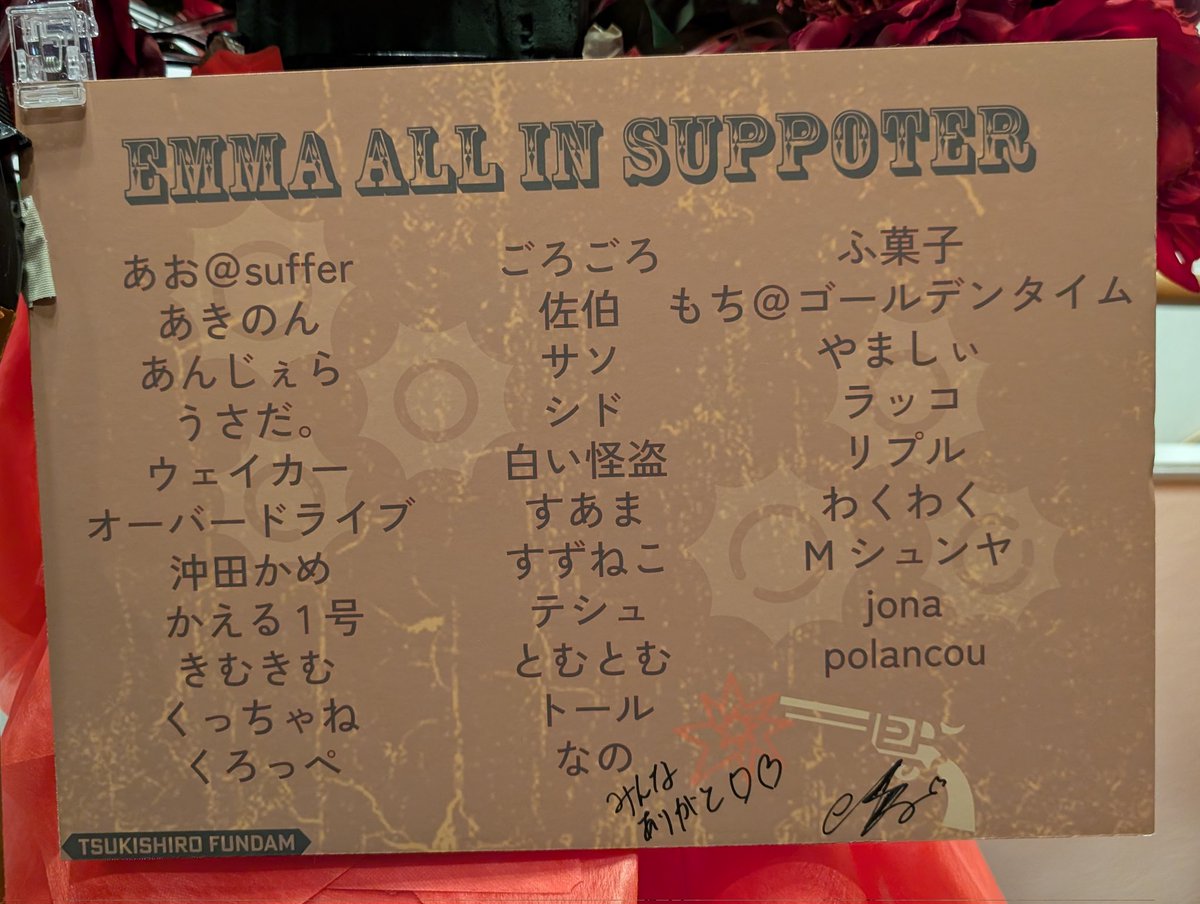 EMMA ALL IN SUPPOTER
あお@suffer
あきのん
あんじぇら
うさだ。
ウェイカー
オーバードライブ
沖田かめ
かえる1号
きむきむ
くっちゃね
くろっぺ
ごろごろ
佐伯
サソ
シド
白い怪盗
すあま
すずねこ
テシュ
とむとむ
トール
なの
ふ菓子
もち@ゴールデンタイム
やましぃ
ラッコ
リプル
わくわく
M シュンヤ
jona
polancou
みんな
ありがと♡♡
TSUKISHIRO FUNDAM